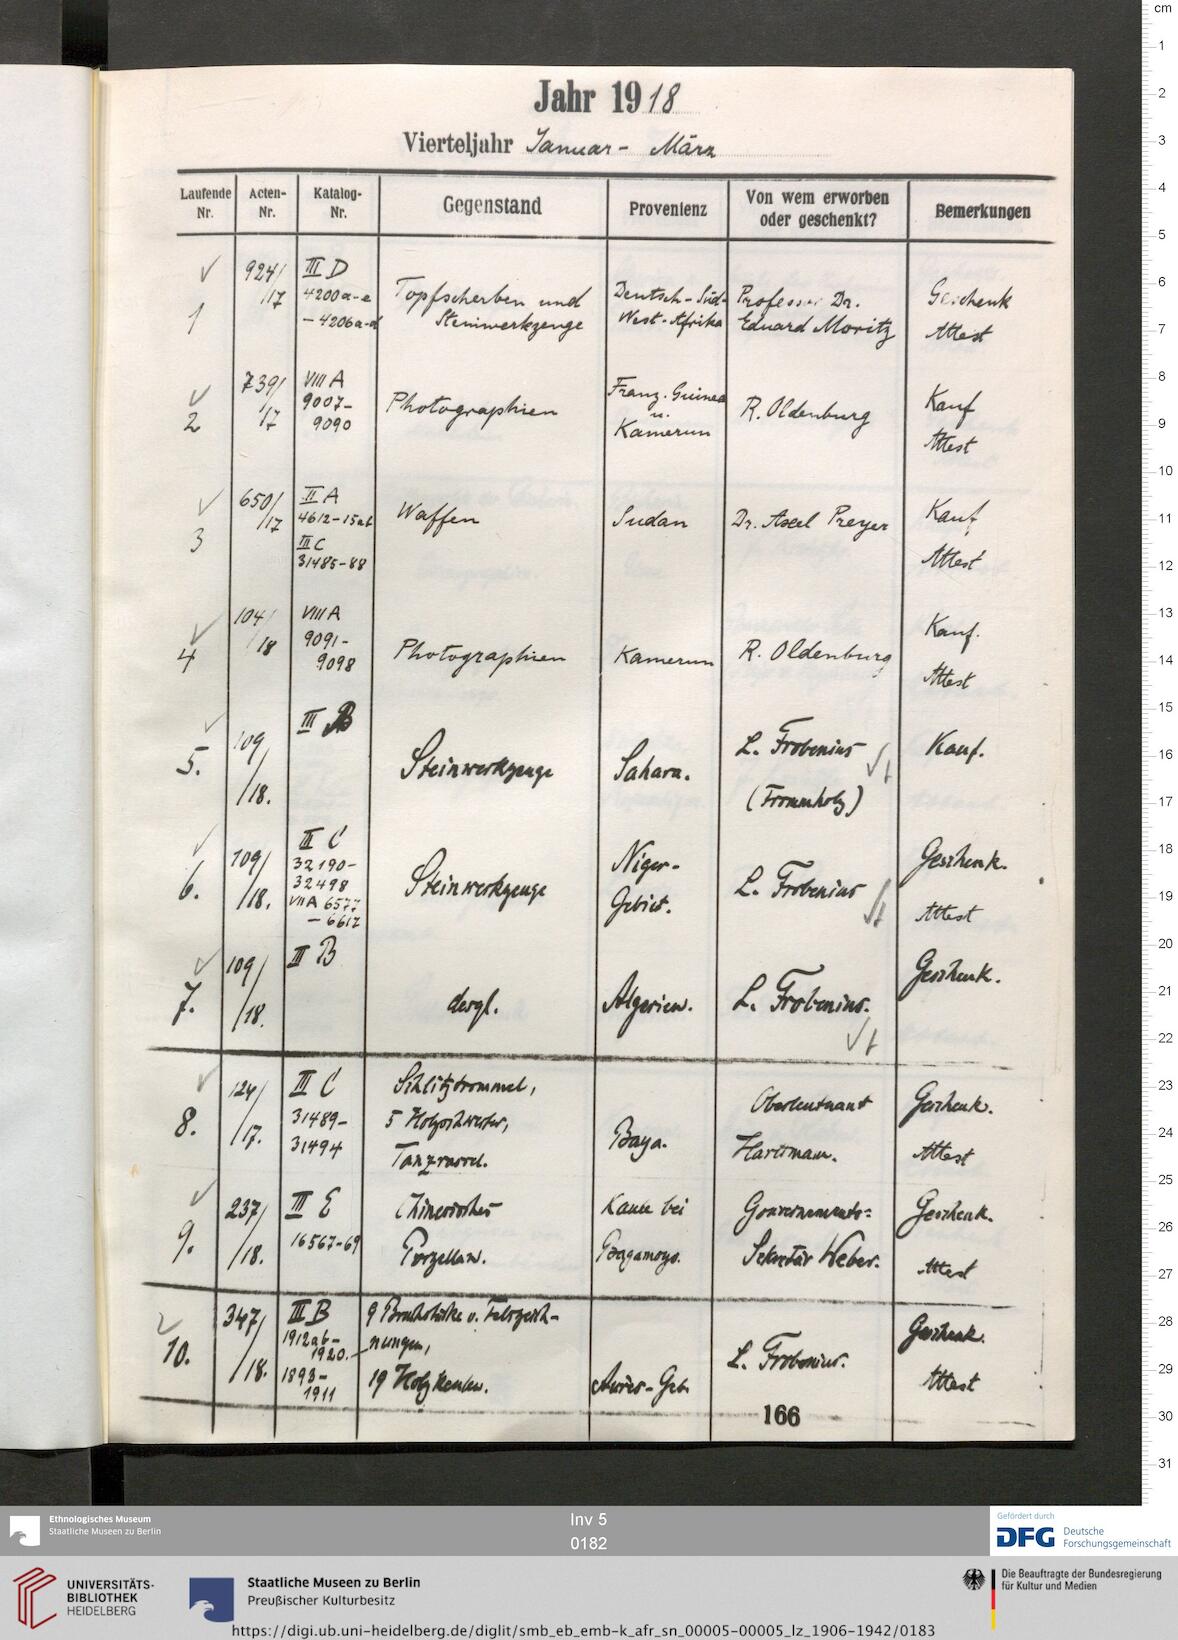 Jahr 1918
Vierteljahr Januar - März
Laufende Nr. Acten-Nr. Katalog-Nr. Gegenstand Provenienz Von wem erworben oder geschenkt? Bemerkungen
1 924/17 III D 4200a-e - 4206a-d Topfscherben und Steinwerkzeuge Deutsch-Süd-West-Afrika Professor Dr. Eduard Moritz Geschenk Attest
2 739/17 VIII A 9007-9090 Photographien Franz. Guinea u. Kamerun R. Oldenburg Kauf Attest
3 650/17 II A 4612-15ab III C 31485-88 Waffen Sudan Dr. Axel Preyer Kauf Attest
4 104/18 VIII A 9091-9098 Photographien Kamerun R. Oldenburg Kauf. Attest
5. 109/18. III B Steinwerkzeuge Sahara. L. Frobenius (Frommholz) Kauf.
6. 109/18. III C 32190-32498 VII A 6577-6612 Steinwerkzeuge Niger-Gebiet. L. Frobenius Geschenk. Attest
7. 109/18. III B dergl. Algerien. L. Frobenius. Geschenk.
8. 124/17. III C 31489-31494 Schlitztrommel, 5 Tanz Baya. Oberleutnant Hartmann. Geschenk. Attest
9. 237/18. III E 16567-69 Chinesisches Porzellan. Kaule bei Bagamoyo. Gouvernements-Sekretär Weber. Geschenk. Attest
10. 347/18. III B 1912ab-1920. 1893-1911 9 Bruchstücke v. Felszeichnungen, 19 Holzkeulen. -Geb. L. Frobenius. Geschenk. Attest
166
Ethnologisches Museum
Staatliche Museen zu Berlin
Inv 5
0182
Gefördert durch
DFG Deutsche Forschungsgemeinschaft
UNIVERSITÄTS-
BIBLIOTHEK
HEIDELBERG
Staatliche Museen zu Berlin
Preußischer Kulturbesitz
Die Beauftragte der Bundesregierung
für Kultur und Medien
https://digi.ub.uni-heidelberg.de/diglit/smb_eb_emb-k_afr_sn_00005-00005_lz_1906-1942/0183
cm
1
2
3
4
5
6
7
8
9
10
11
12
13
14
15
16
17
18
19
20
21
22
23
24
25
26
27
28
29
30
31